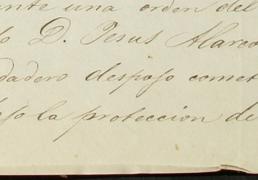 ante una orden del
D. Jesus Alarco
dadero despojo comet
la proteccion de